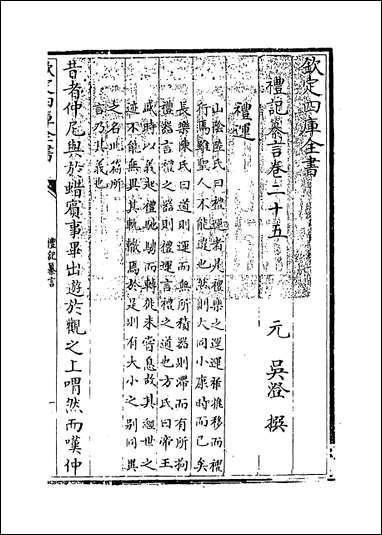 欽定四庫全書
禮記纂言卷二十五
元 吳澄 撰
禮運
山陰陸氏曰禮運者是禮樂之運運神推移而禮
行焉雖聖人不能違也然則大同小康時而已矣
長樂陳氏曰道則運而無所積器則滯而有所拘
禮器言禮之器則禮運言禮之道也方氏曰帝王
盛時以義起禮馳騖而轉徙未嘗息故其經世之
迹不能無異其軌轍焉於是則有大小之别同異
之名此篇所
言乃其義也
昔者仲尼與於蜡賓事畢出遊於觀之上喟然而嘆仲
欽定四庫全書
禮記纂言
一